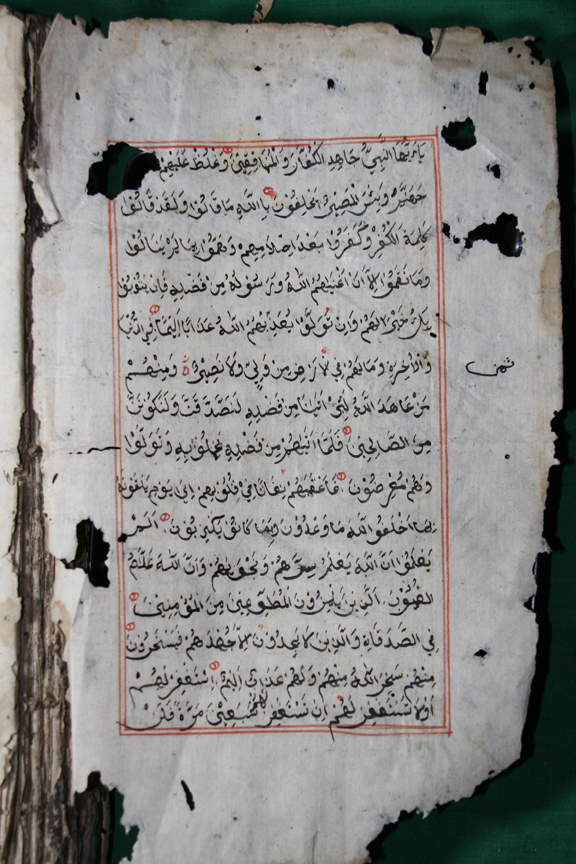 يايها النبي جاهد الكفار والمنافقين واغلظ عليهم
جهنم وبئس المصير يحلفون بالله ما قالوا ولقد قالوا
كلمة الكفر وكفروا بعد اسلامهم وهموا بما لم ينالوا
وما نقموا الا ان اغنيهم الله ورسوله من فضله فان يتوبوا
يك خيرا لهم وان يتولوا يعذبهم الله عذابا اليما في الدنيا
والاخرة وما لهم في الارض من ولي ولا نصير ومنهم
من عاهد الله لئن اتينا من فضله لنصدقن ولنكونن
من الصالحين فلما اتيهم من فضله بخلوا به وتولوا
وهم معرضون فاعقبهم نفاقا في قلوبهم الى يوم يلقونه
بما اخلفوا الله ما وعدوه وبما كانوا يكذبون الم
يعلموا ان الله يعلم سرهم ونجويهم وان الله علام
الغيوب الذين يلمزون المطوعين من المؤمنين
في الصدقات والذين لا يجدون الا جهدهم فيسخرون
منهم سخر الله منهم ولهم عذاب اليم استغفر لهم
او لا تستغفر لهم ان تستغفر لهم سبعين مرة فلن
ثمن